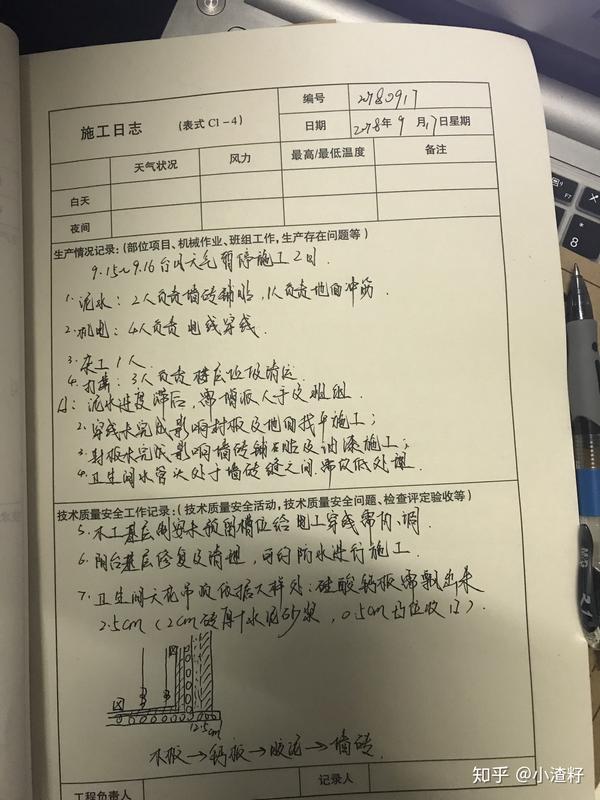 施工日志 (表式 C1-4) 编号 20180917
日期 2018年9月17日星期
天气状况 风力 最高/最低温度 备注
白天
夜间
生产情况记录：(部位项目、机械作业、班组工作，生产存在问题等)
9.15~9.16 台风天气暂停施工2日.
1. 泥水：2人负责墙砖铺贴，1人负责地面冲筋.
2. 机电：4人负责电线穿线.
3. 杂工1人.
4. 3人负责楼层垃圾清运.
泥水进度滞后，需增派人手及班组.
2. 穿线未完成影响封板及地面找平施工；
3. 封板未完成影响墙砖铺贴及油漆施工；
4. 卫生间水管头处于墙砖缝之间.需做低处理.
技术质量安全工作记录：(技术质量安全活动，技术质量安全问题、检查评定验收等)
5. 木工基层制安未预留槽位给电工穿线需协调.
6. 阳台基层修复及清理，可约防水进行施工.
7. 卫生间天花吊顶依据大样处：硅酸钙板需飘出来
2.5cm (2cm砖厚+水泥砂浆，0.5cm留位收口).
2.5cm
木板→钙板→胶泥→墙砖.
工程负责人 记录人
知乎 @小渣籽
F7
8